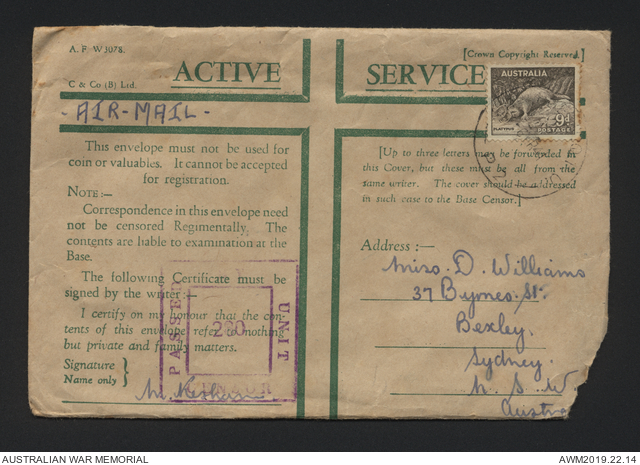 A. F. W3078.
[Crown Copyright Reserved.]
C & Co (B) Ltd.
ACTIVE SERVICE
AUSTRALIA
PLATYPUS
9d
POSTAGE
- AIR-MAIL -
This envelope must not be used for
coin or valuables. It cannot be accepted
for registration.
NOTE:—
Correspondence in this envelope need
not be censored Regimentally. The
contents are liable to examination at the
Base.
The following Certificate must be
signed by the writer:—
I certify on my honour that the con-
tents of this envelope refer to nothing
but private and family matters.
Signature
Name only
PASSED
UNIT
CENSOR
[Up to three letters may be forwarded in
this Cover, but these must be all from the
same writer. The cover should be addressed
in such case to the Base Censor.]
Address:—
Miss. D. Williams
37 Byrnes. St.
Bexley.
Sydney.
N. S. W
Austra
AUSTRALIAN WAR MEMORIAL
AWM2019.22.14